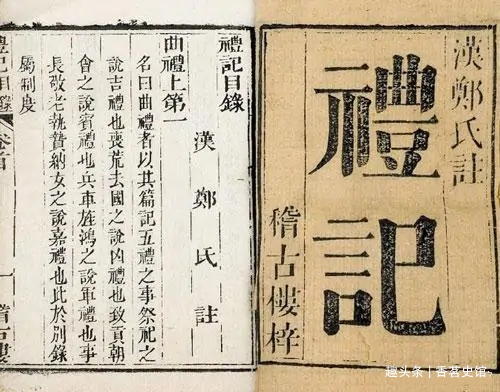 漢鄭氏註
禮記
稽古樓梓
禮記目錄
漢鄭氏註
曲禮上第一
名曰曲禮者以其篇記五禮之事祭祀之
說吉禮也喪荒去國之說凶禮也致貢朝
會之說賓禮也兵車旌鴻之說軍禮也事
長敬老執贄納女之說嘉禮也此於別錄
屬制度
禮記目錄 一 稽古樓
趣头条 | 香茗史馆